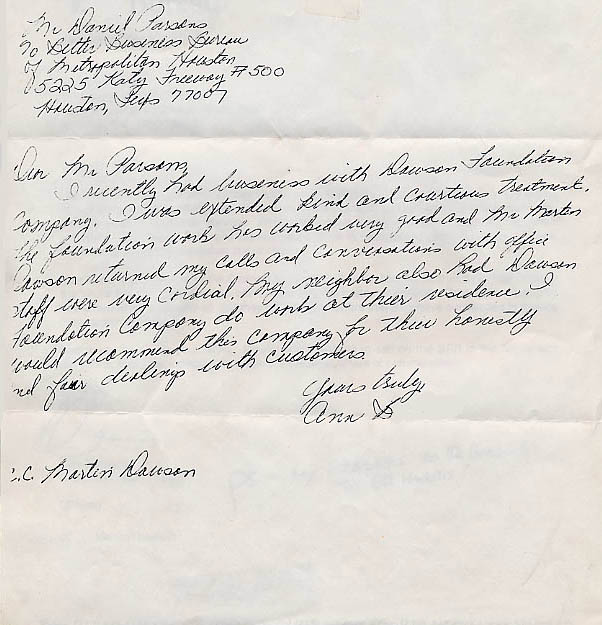 Mr Daniel Parsons
% Better Business Bureau
of Metropolitan Houston
5225 Katy Freeway #500
Houston, Texs 77007
Dear Mr Parsons,
I recently had business with Dawson Foundation
Company. I was extended kind and courtious treatment.
The foundation work has worked very good and Mr Marten
Dawson returned my calls and conversations with office
staff were very cordial. My neighbor also had Dawson
Foundation Company do work at thier residence. I
would recommend this company for thier honestly
and fair dealings with customers
Yours truly,
Ann D
C.C. Marten Dawson